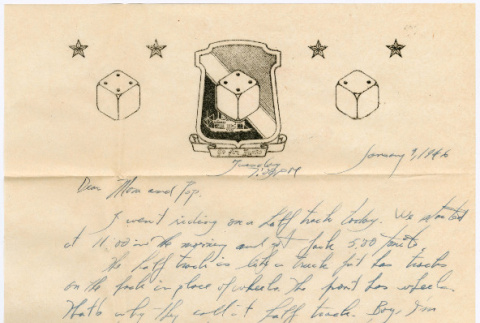 Go For Broke
Tuesday January 9, 1946
7:30 PM
Dear Mom and Pop,
I went riding on a half track today. We started
at 11:00 in the morning and got back 5:00
The half track is like a truck but has tracks
on the back in place of wheels. The front has wheels.
That's why they call it half track. Boy I'm